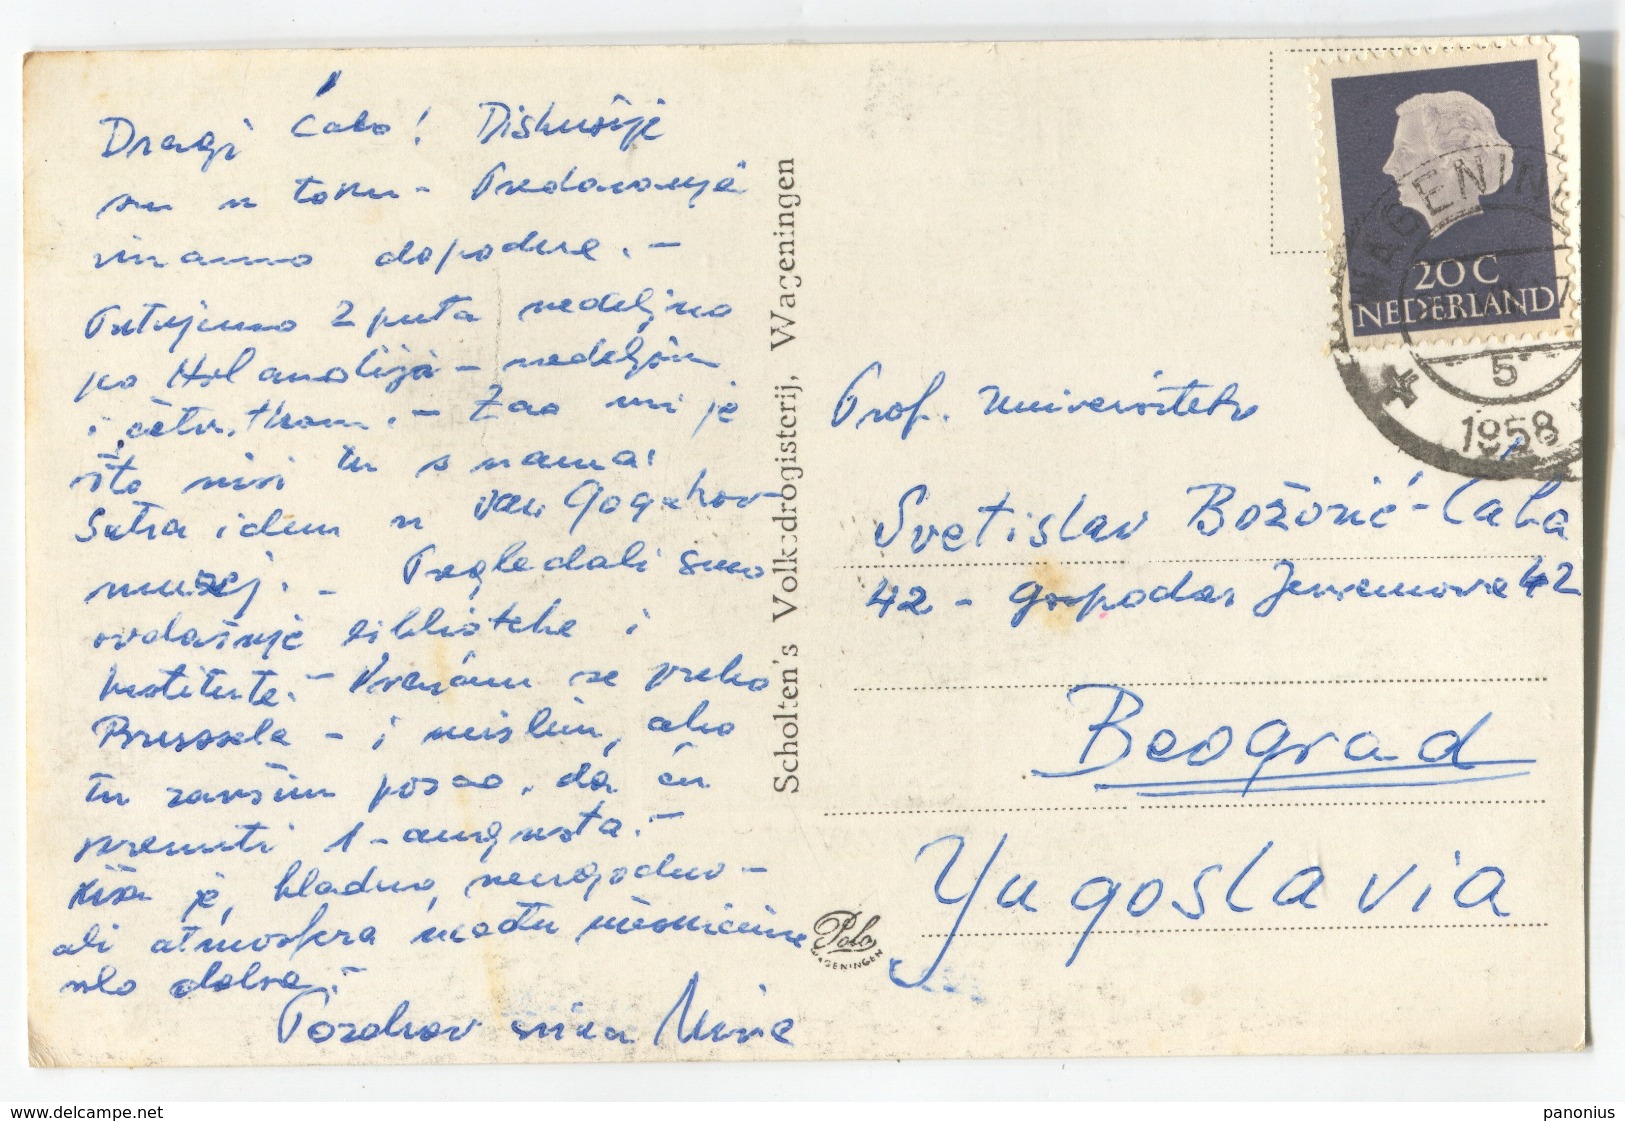 Dragi Ćalo! Diskusije
su u toku - Predavanja
imamo dopodne. -
Putujemo 2 puta nedeljno
po Holandiji - nedeljom
i četvrtkom. - Žao mi je
što nisi tu s nama!
Sutra idem u Van Gogghov
muzej. - Pregledali smo
ovdašnje biblioteke i
institute. - Vraćam se preko
Brussela - i mislim, ako
tu završim posao, da ću
krenuti 1 - augusta. -
Kiša je, hladno, neugodno -
ali atmosfera među
vrlo dobra. -
Pozdrav svima
Scholten's Volksdrogisterij, Wageningen
Polo
WAGENINGEN
20 C
NEDERLAND
WAGENINGEN
5
1958
Prof. Univerziteta
Svetislav Božović - Ćala
42 - Gospodar Jevremova 42
Beograd
Yugoslavia
delcampe.net
panonius